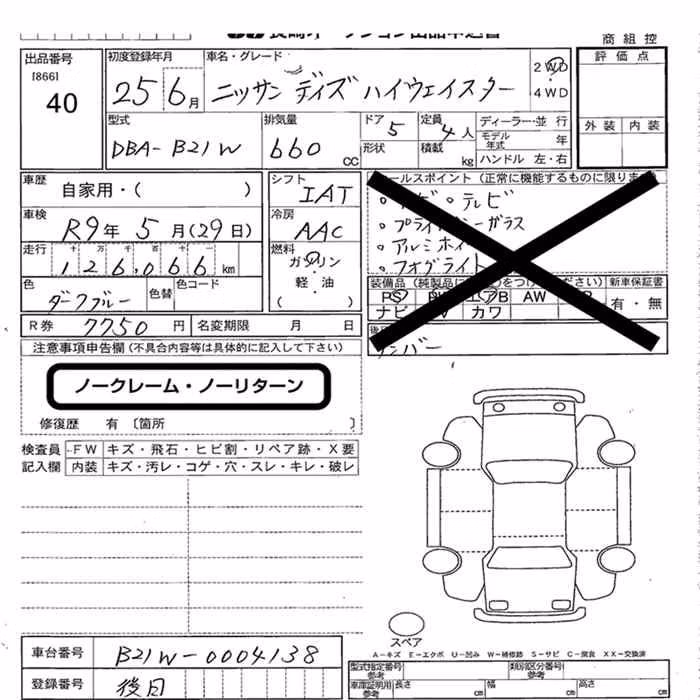 商組控
出品番号 [866] 40
初度登録年月 25 6月
車名・グレード ニッサン デイズ ハイウェイスター 2WD 4WD
評価点
外装 内装
型式 DBA-B21W
排気量 660 CC
ドア 5 形状
定員 4人 積載 kg
ディーラー・並行
モデル年式 年
ハンドル 左・右
車歴 自家用・( )
シフト IAT
車検 R9年 5月(29日)
冷房 AAC
走行 十 万 千 百 十 一
126,066 km
燃料 ガソリン 軽・油 ( )
色 ダークブルー 色替 色コード
R券 7750円 名変期限 月 日
セールスポイント(正常に機能するものに限りま
・テレビ
ガラス
アルミホイ
フォグライト
装備品
新車保証書
PS エアB AW
ナビ カワ
有・無
注意事項申告欄(不具合内容等は具体的に記入して下さい)
ノークレーム・ノーリターン
修復歴 有 〔箇所 〕
検査員記入欄
FW キズ・飛石・ヒビ割・リペア跡・X要
内装 キズ・汚レ・コゲ・穴・スレ・キレ・破レ
スペア
A-キズ E-エクボ U-凹み W-補修跡 S-サビ C-腐食 XX-交換済
車台番号 B21W-0004138
登録番号 後日
型式指定番号 参考
類別区分番号 参考
車庫証明用 参考 長さ cm 幅 cm 高さ cm